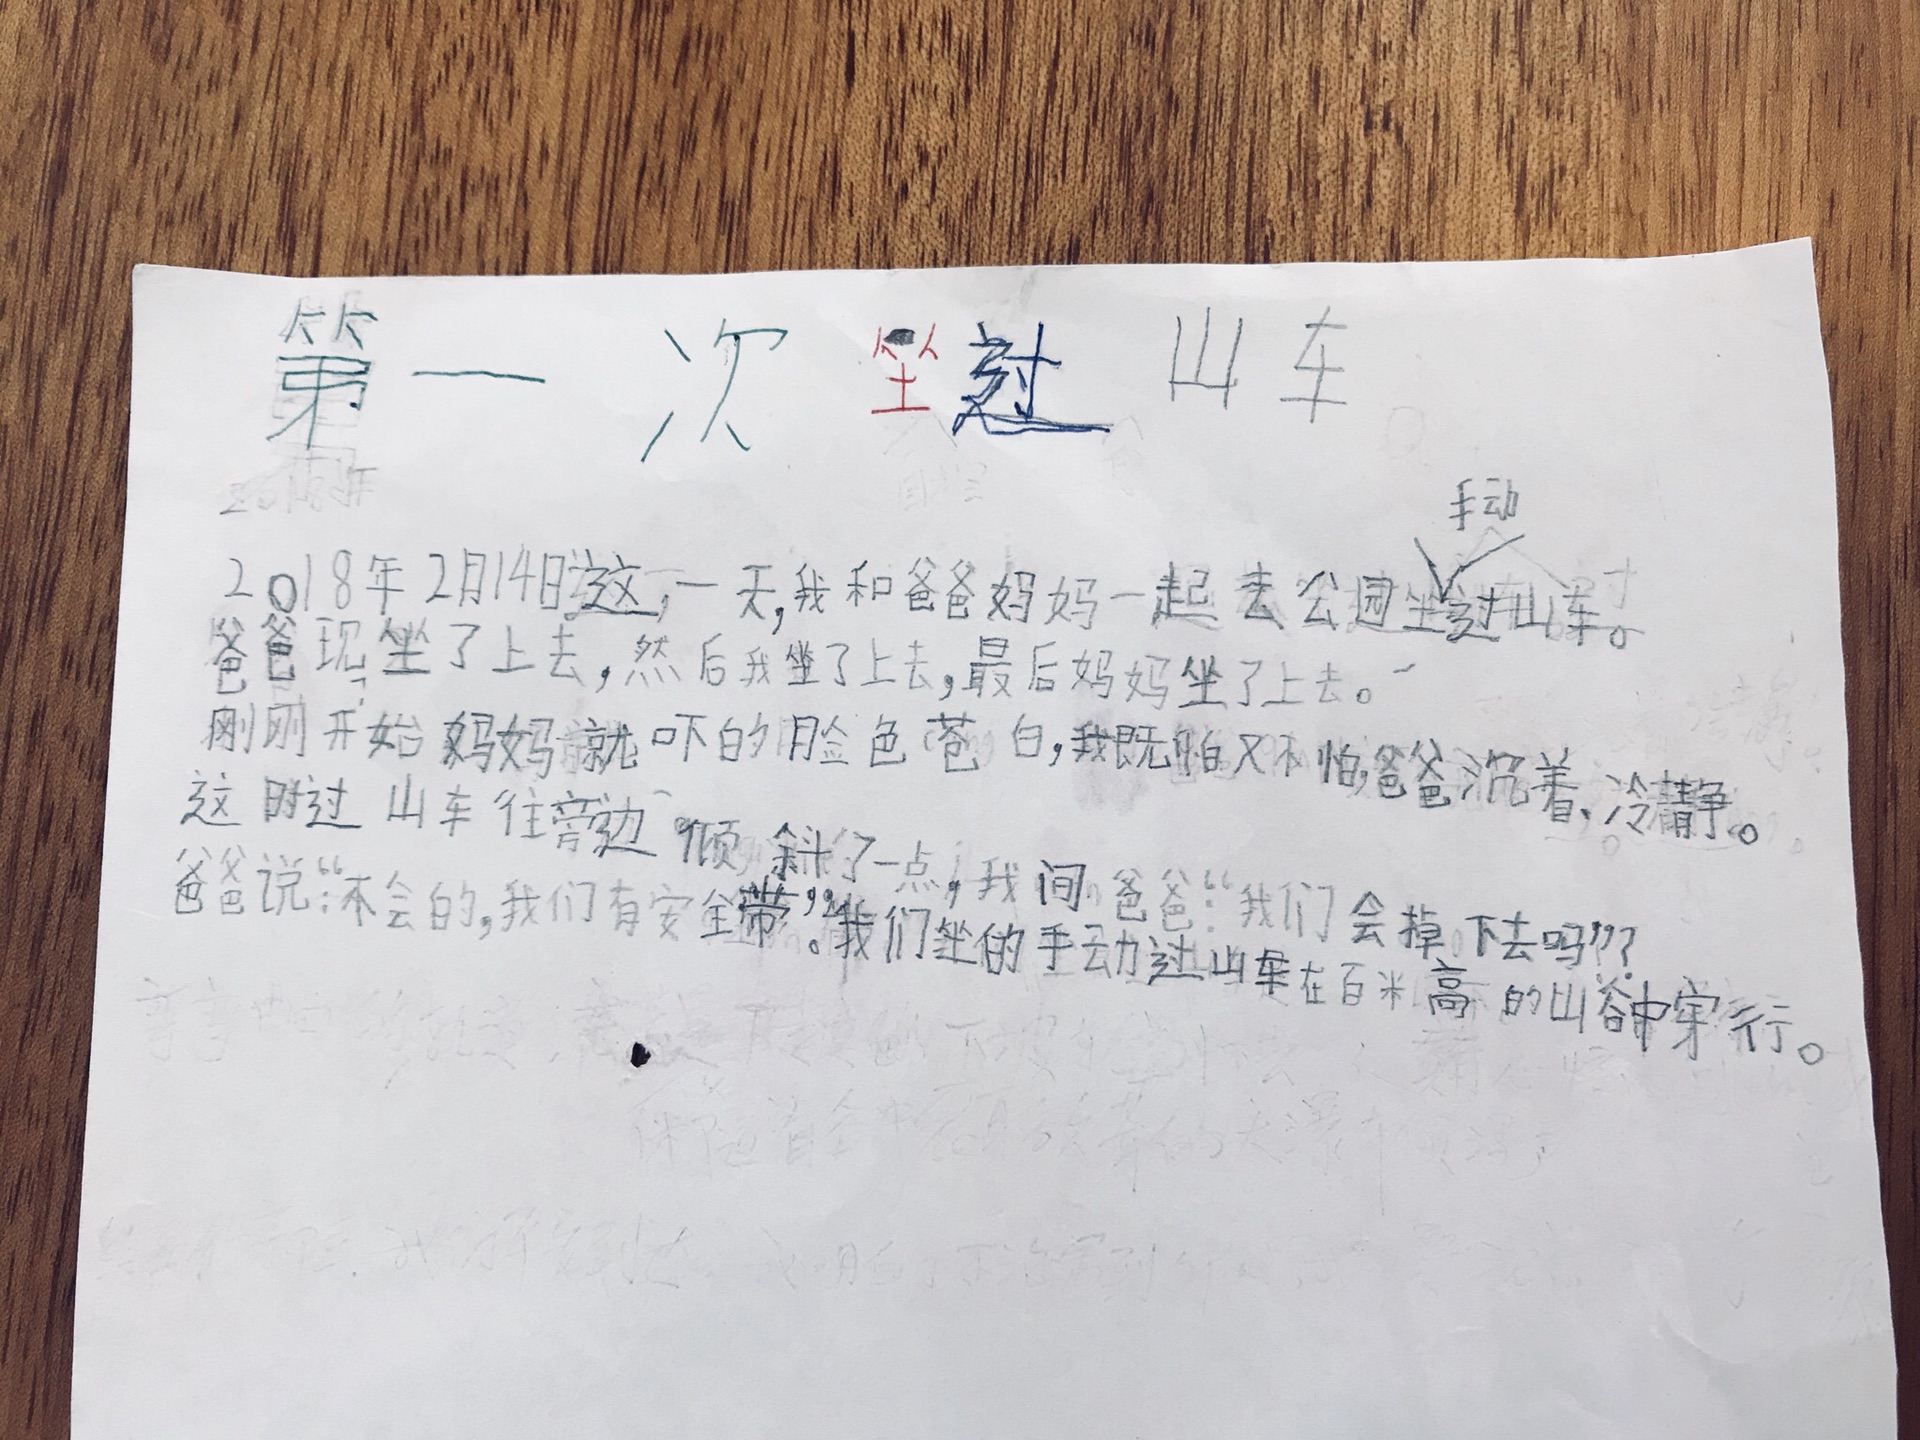 第一次坐过山车
2018年
手动
2018年2月14日这,一天,我和爸爸妈妈一起去公园坐过山车。
爸爸现坐了上去,然后我坐了上去,最后妈妈坐了上去。
刚刚开始妈妈就吓的脸色苍白,我既怕又不怕,爸爸沉着、冷静。
这时过山车往旁边倾斜了一点,我问爸爸:“我们会掉下去吗”?
爸爸说:“不会的,我们有安全带”。我们坐的手动过山车在百米高的山谷中穿行。